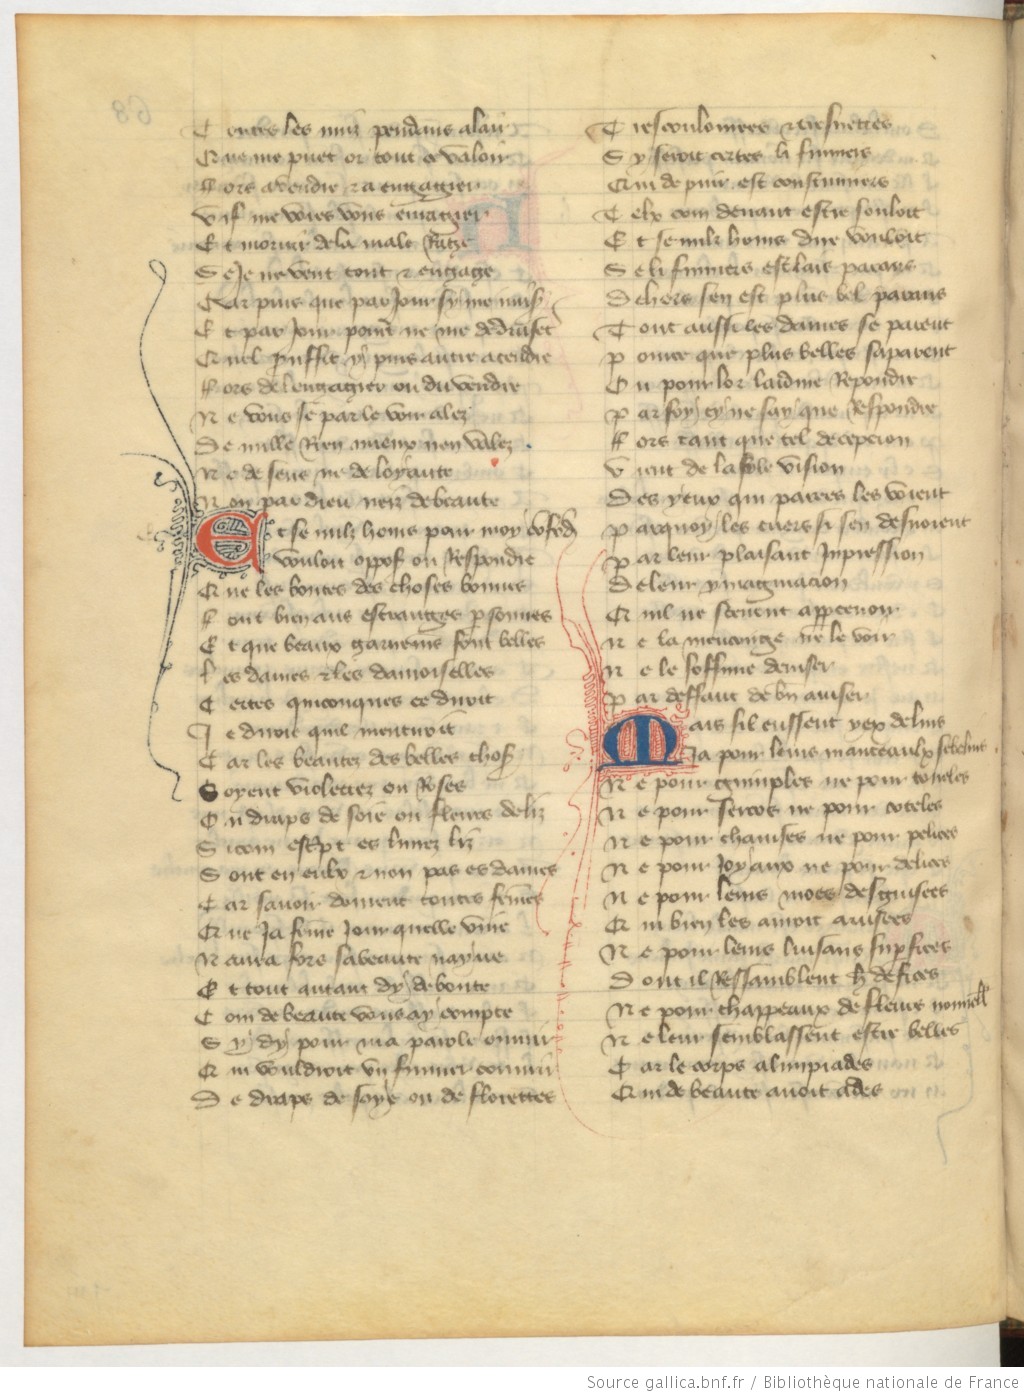 Toutes les nuiz pendans a lair
Que me puet or tout ce valoir
Fors a vendre et a engagier
Vif me voies vous enragier
Et morir de la male rage
Se je ne vent tout et engage
Car puis que par jour si me nuist
Et par jour point ne me deduiset
Quel proffit y puis autre atendre
Fors de lengagier ou du vendre
Ne vous se par le voir alez
De mille rien mieux nen valez
Ne de sens ne de loyaute
Non par dieu neiz de beaute
Et se nulz homs pour moy confondre
Vouloit opposer ou respondre
Que les bontes des choses bonnes
Font bien aus estranges personnes
Et que beaux garnemens font belles
Les dames et les damoiselles
Certes quiconques ce diroit
Je diroie quil mentiroit
Car les beautez des belles choses
Soyent violetez ou roses
Ou draps de soie ou fleurs de liz
Sicom escript es livrez liz
Sont en eulx et non pas es dames
Car savoir doivent toutes femmes
Que ja femme jour quelle vive
Naura fors sa beaute nayve
Et tout autant dy de bonte
Com de beaute vous ay compte
Sy dy pour ma parole ouvrir
Qui vouldroit un fumier couvrir
De draps de soye ou de florettes
Tres coulourees et tresnettes
Sy seroit certes li fumiers
Qui de puir est coustumiers
Telx com devant estre souloit
Et se nulz homs dire vouloit
Se li fumiers est lais par ans
Dehors sen est plus bel parans
Tout aussi les dames se parent
Pource que plus belles saparent
Ou pour lor laidure repondre
Par foy cy ne say que respondre
Fors tant que tel decepcion
Vient de la fole vision
Des yeux qui parees les voient
Parquoy les cuers si sen desvoient
Par leur plaisant inpression
De leur ymaginacion
Quil ne scevent appercevoir
Ne la menconge ne le voir
Ne le soffime deviser
Par deffaut de bn aviser
Mais sil eussent yex de lins
Ja pour leurs manteaulx sebelins
Ne pour guimples ne pour toueles
Ne pour sercos ne pour coteles
Ne pour chanises ne pour pelices
Ne pour joyaux ne pour delices
Ne pour leurs moes desguisees
Qui bien les auroit avisees
Ne pour leurs luisans supfices
Dont il ressamblent h defices
Ne pour chappeaux de fleurs nouvelles
Ne leur semblassent estre belles
Car le corps alimpiades
Qui de beaute avoit ades
Source gallica.bnf.fr / Bibliothèque nationale de France